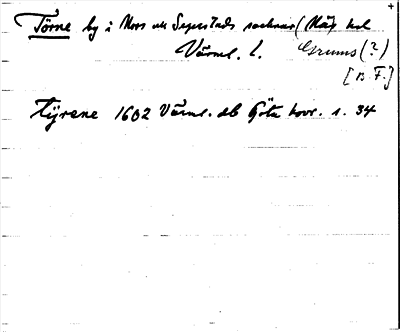 Törne by i Nors och Segerstads socknar (Näs hd
Värml. l. Grums (?)
[B. F.]
Tyrene 1602 Värml. db Göta hovr. s. 34